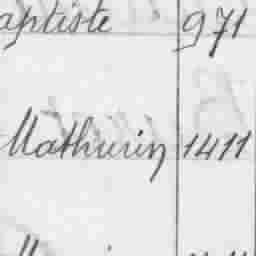 aptiste 971
Mathurin 1411